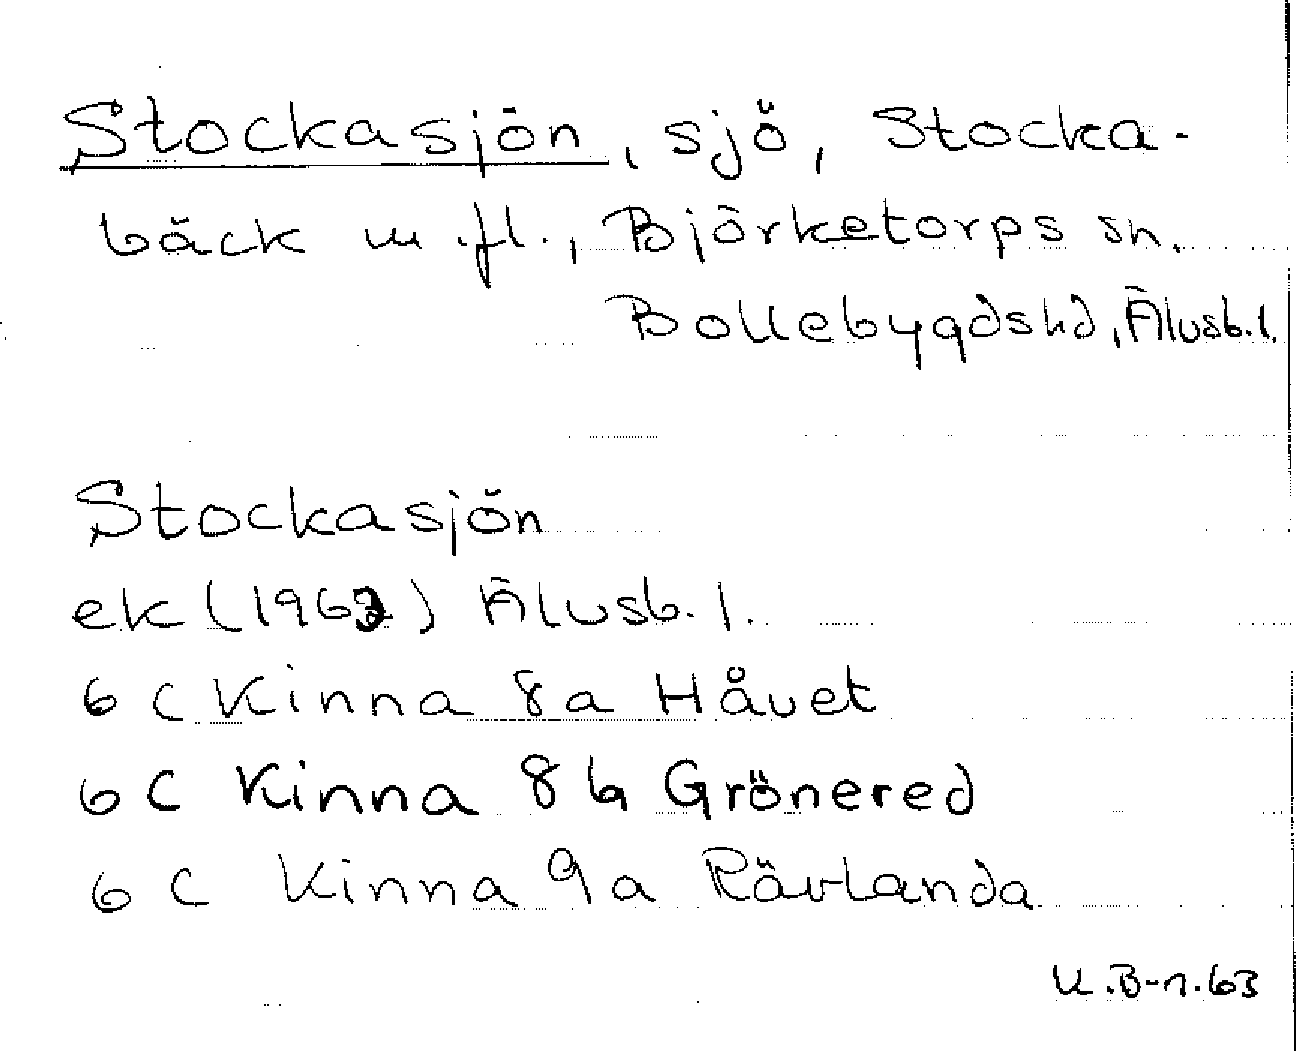 Stockasjön, sjö, Stocka-
bäck m.fl., Björketorps sn.
Bollebygdshd, Älvsb.l.
Stockasjön
ek (1962) Älvsb. l.
6 C Kinna 8a Håvet
6 C Kinna 8b Grönered
6 C Kinna 9a Rävlanda
U.B-n.63